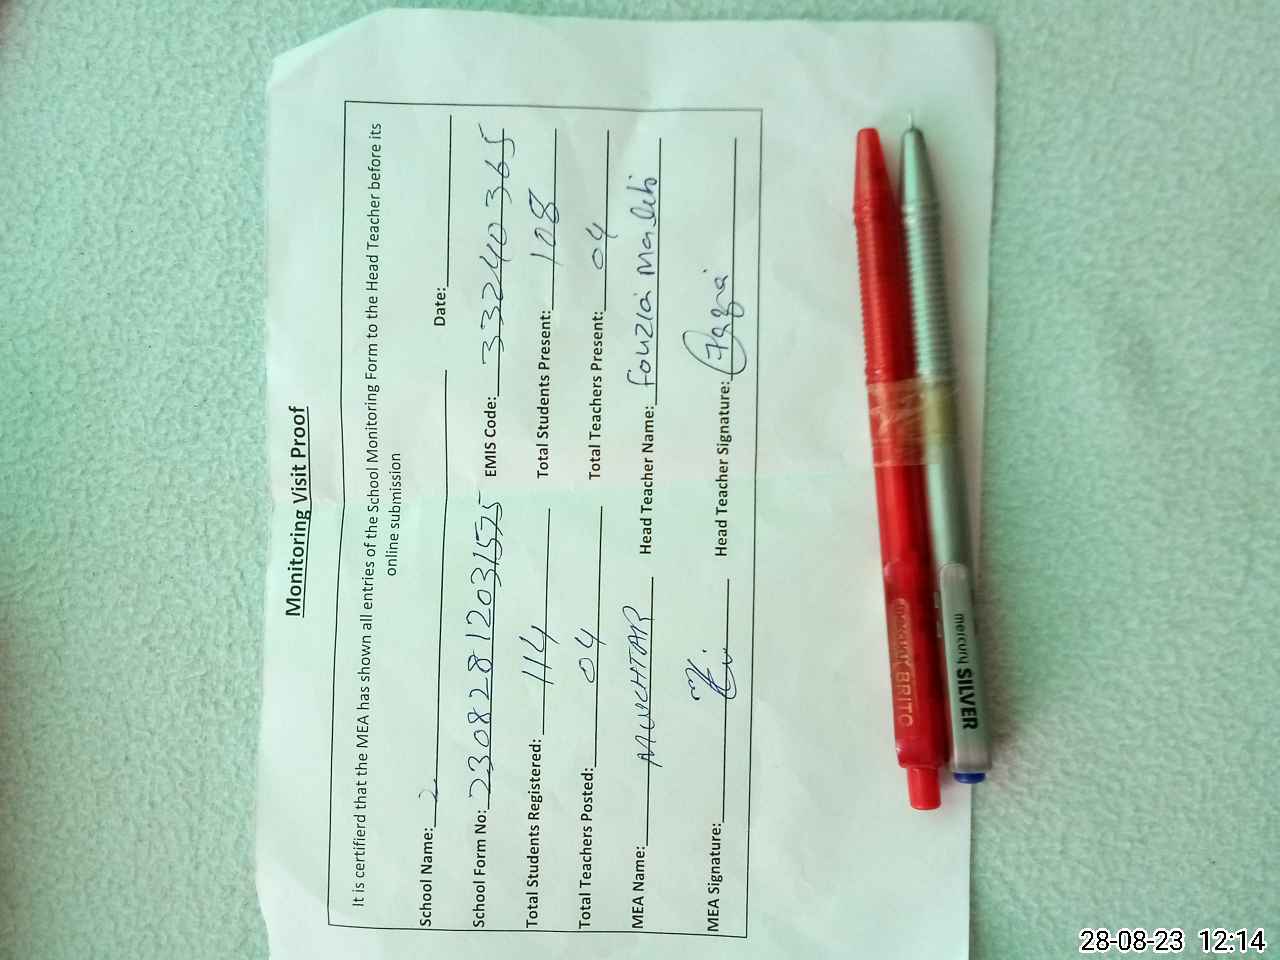 Monitoring Visit Proof
It is certifierd that the MEA has shown all entries of the School Monitoring Form to the Head Teacher before its
online submission
School Name: Date:
School Form No: 23082812031575 EMIS Code: 33240365
Total Students Registered: 114 Total Students Present: 108
Total Teachers Posted: 04 Total Teachers Present: 04
MEA Name: MUCHTAR Head Teacher Name: Fouzia
MEA Signature: Head Teacher Signature:
BRITO
mercury SILVER
28-08-23 12:14